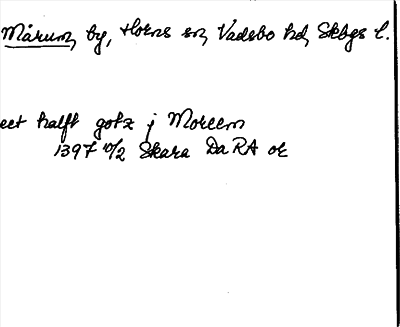 Mårum, by, Horns sn, Vadsbo hd, Skbgs l.
eet halft gotz j Moreem
1397 10/2 Skara Da RA or